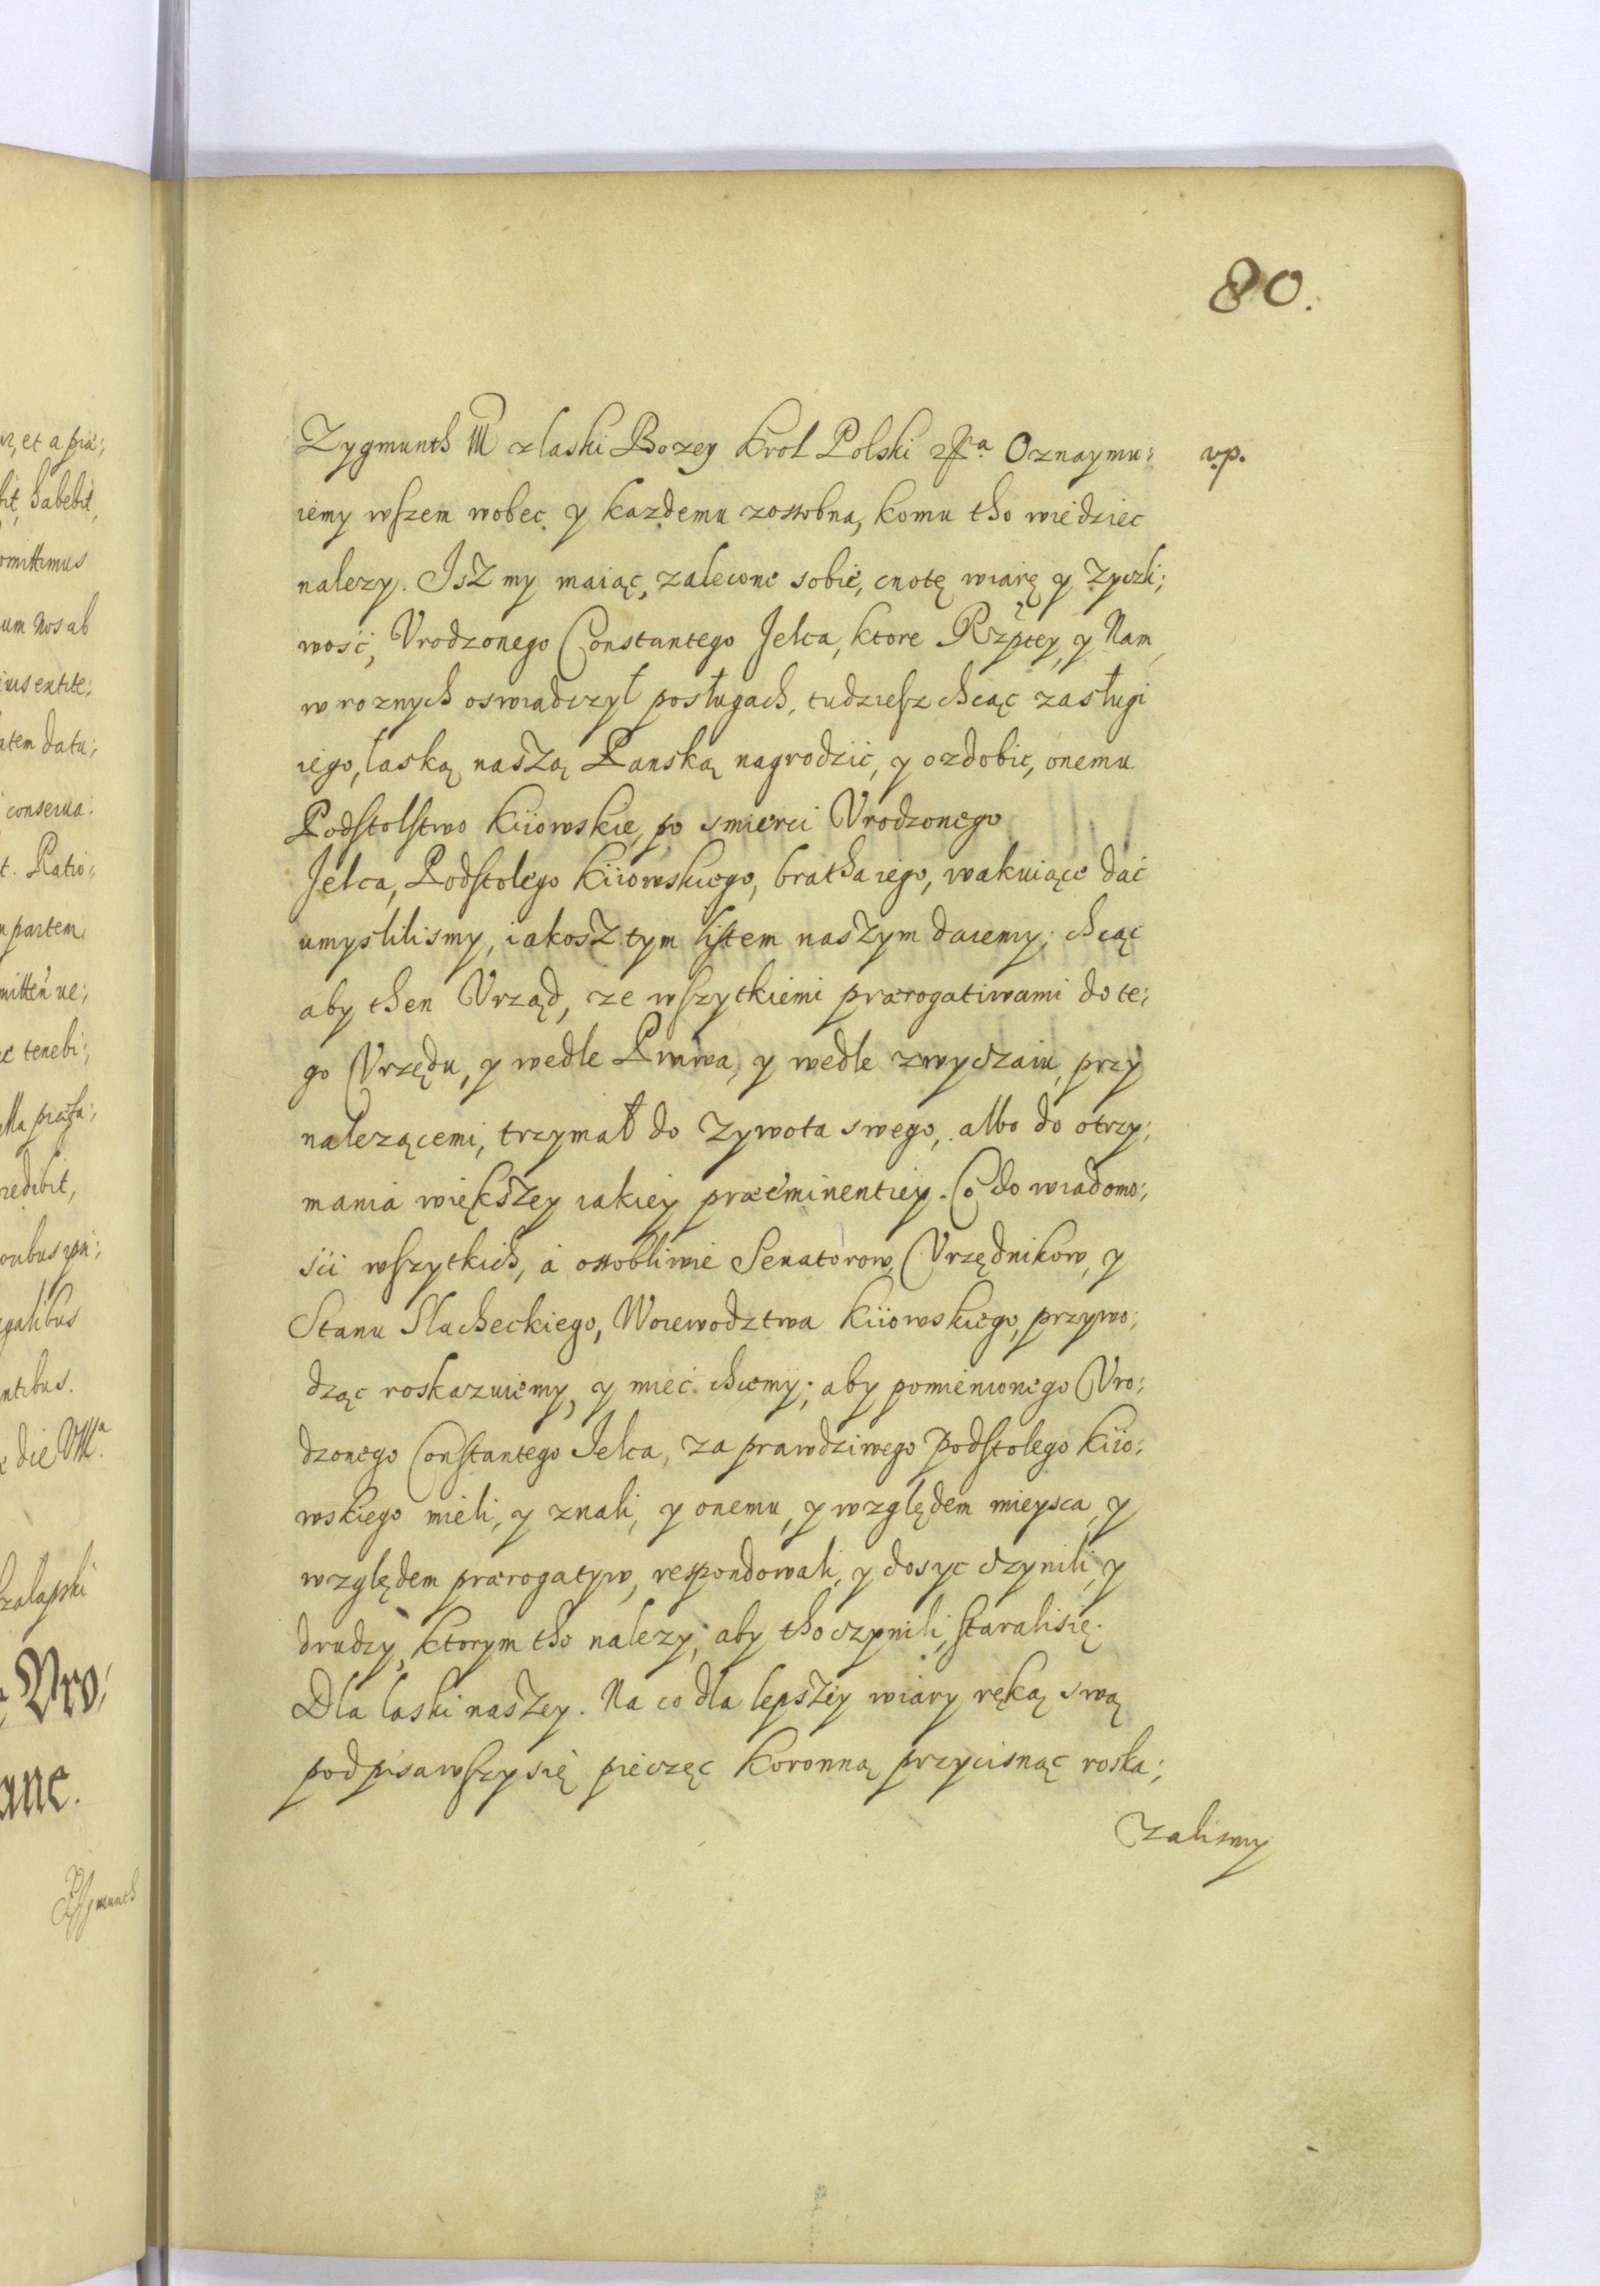 80.
Zygmunth III z laski Bozey Krol Polski etc<sup>a</sup> Oznaymu: v.p.
iemy wszem wobec y kazdemu zossobna, komu tho wiedziec
nalezy. Jsz my maiąc, zalecone sobie, cnotę wiarę y zyczli;
wość, Vrodzonego Constantego Jelca, ktore Rzptey, y Nam,
w roznych oswiadczył posługach, tudziesz chcąc zasługi
iego, łaską naszą Pańską nagrodzić, y ozdobic, onemu
Podstolstwo Kiiowskie, po smierci Vrodzonego
Jelca, Podstolego Kiiowskiego, bratha iego, wakuiące dać
umyslilismy, iakosz tym listem naszym daiemy; chcąc
aby then Vrząd, ze wszytkiemi prærogatiwami do te;
go Vrzędu, y wedle Prawa, y wedle zwyczaiu, przy
nalezącemi, trzymał do zywota swego, albo do otrzy;
mania większey iakiey præeminentiey. Co do wiadomo;
sci wszytkich, a ossobliwie Senatorow, Vrzędnikow, y
Stanu Slacheckiego, Woiewodztwa Kiiowskiego, przywo;
dząc roskazuiemy, y mieć chcemy; aby pomienionego Vro;
dzonego Constantego Jelca, za prawdziwego Podstolego Kiio;
wskiego mieli, y znali, y onemu, y względem mieysca, y
względem prærogatyw, respondowali, y dosyc czynili, y
drudzy, ktorym tho nalezy, aby tho czynili, staralisię.
Dla laski naszey. Na co dla lepszey wiary ręką swą
podpisawszy się pieczęc Koronną przycisnąc roska;
zalismy